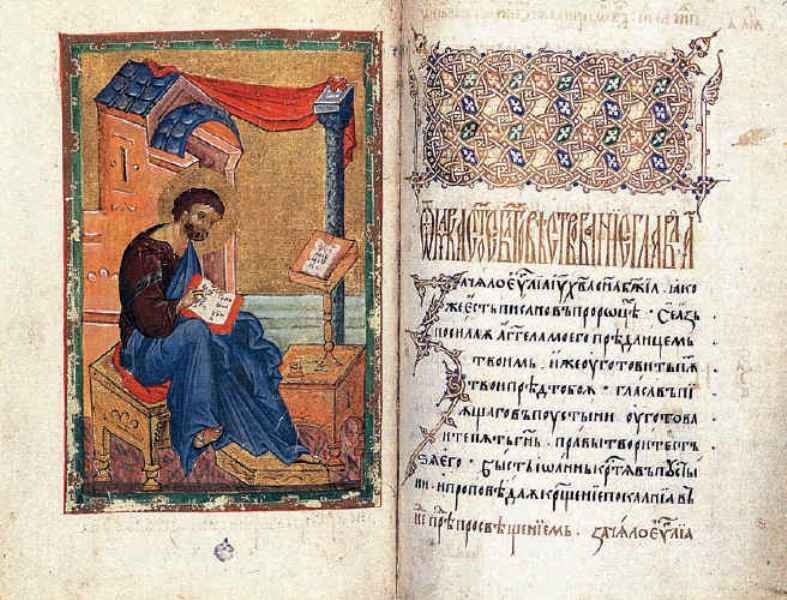 Ѿ марка ст҃ое бл҃говѣствованїе глава а҃
Зачѧло еѵ҃лїа іѵ҃ хв҃а сн҃а бж҃їа. ꙗко
же есть писано въ пророцѣ. Се азь
посилаѫ аг҃гела моего прѣд лицемь
твоимь, иже оуготовить пѫ
ть твои прѣд тобоѫ. Глась въпї
ѫщаго въ поустыни оуготова
ите пѫть гн҃ь. правы творите стъ
зѧ его. Бысть іѡаннь крⷭ҇тѧ въ пꙋсты
ни. и проповѣдаѫ кр҃щенїе покаанїа въ
прѣ просвѣщенїемь. зачѧло еѵ҃лїа